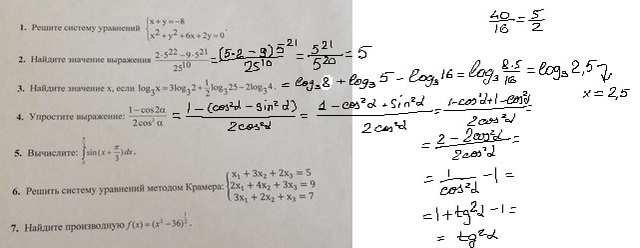 40/16 = 5/2
1. Решите систему уравнений {x+y=−8
x²+y²+6x+2y=0.
2. Найдите значение выражения (2·5²²−9·5²¹)/25¹⁰ = ((5·2−9)5²¹)/25¹⁰ = 5²¹/5²⁰ = 5
3. Найдите значение x, если log₃x=3log₃2+½log₃25−2log₃4. = log₃8 + log₃5 − log₃16 = log₃ 8·5/16 = log₃2,5
x = 2,5
4. Упростите выражение: (1−cos2α)/(2cos²α) = (1−(cos²α−sin²α))/(2cos²α) = (1−cos²α+sin²α)/(2cos²α) = (1−cos²α+1−cos²α)/(2cos²α) =
= (2−2cos²α)/(2cos²α) =
= 1/cos²α −1 =
= 1+tg²α−1 =
= tg²α
5. Вычислите: ∫sin(x+π/3)dx.
6. Решить систему уравнений методом Крамера: {x₁+3x₂+2x₃=5
2x₁+4x₂+3x₃=9
3x₁+2x₂+x₃=7
7. Найдите производную f(x)=(x²−36)^(1/2).